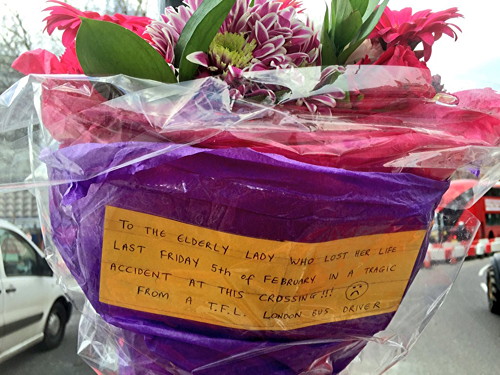 TO THE ELDERLY LADY WHO LOST HER LIFE
LAST FRIDAY 5th of FEBRUARY IN A TRAGIC
ACCIDENT AT THIS CROSSING!!! ☹
FROM A T.F.L. LONDON BUS DRIVER